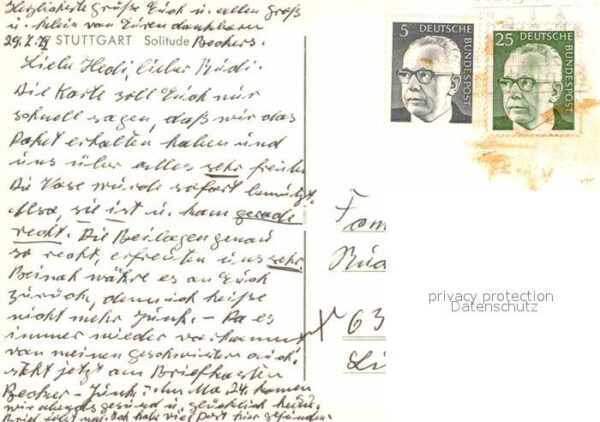 Herzlichste Grüße Euch u. allen Groß
u. Klein von Euren dankbaren
29.7.72 STUTTGART Solitude Beckers.
Liebe Hedi, lieber Rudi.
Die Karte soll Euch nur
schnell sagen, daß wir das
Paket erhalten haben und
uns über alles sehr freuten
Die Vase würde sofort benützt.
Also, sie ist u. kam gerade
recht. Die Beilagen genau
so recht, erfreuten uns sehr.
Beinah währe es an Euch
zurück, denn ich heiße
nicht mehr Jünk. - Da es
immer wieder vorkommt
von meinen Geschwistern auch,
steht jetzt am Briefkasten
Becker - Jünk. Am Mo. 24. kamen
wir abends gesund u. glücklich heim.
Brief folgt. Ich habe viel Post hier gefunden.
5 DEUTSCHE BUNDESPOST
25 DEUTSCHE BUNDESPOST
Fam
Rud
63
Li
privacy protection
Datenschutz